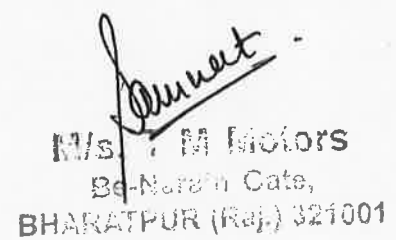 M/s. M Motors
Be-Narain Gate,
BHARATPUR (Raj.) 321001